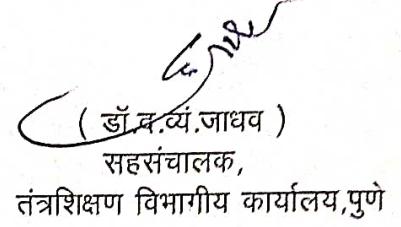 ( डॉ.द.व्यं.जाधव )
सहसंचालक,
तंत्रशिक्षण विभागीय कार्यालय,पुणे